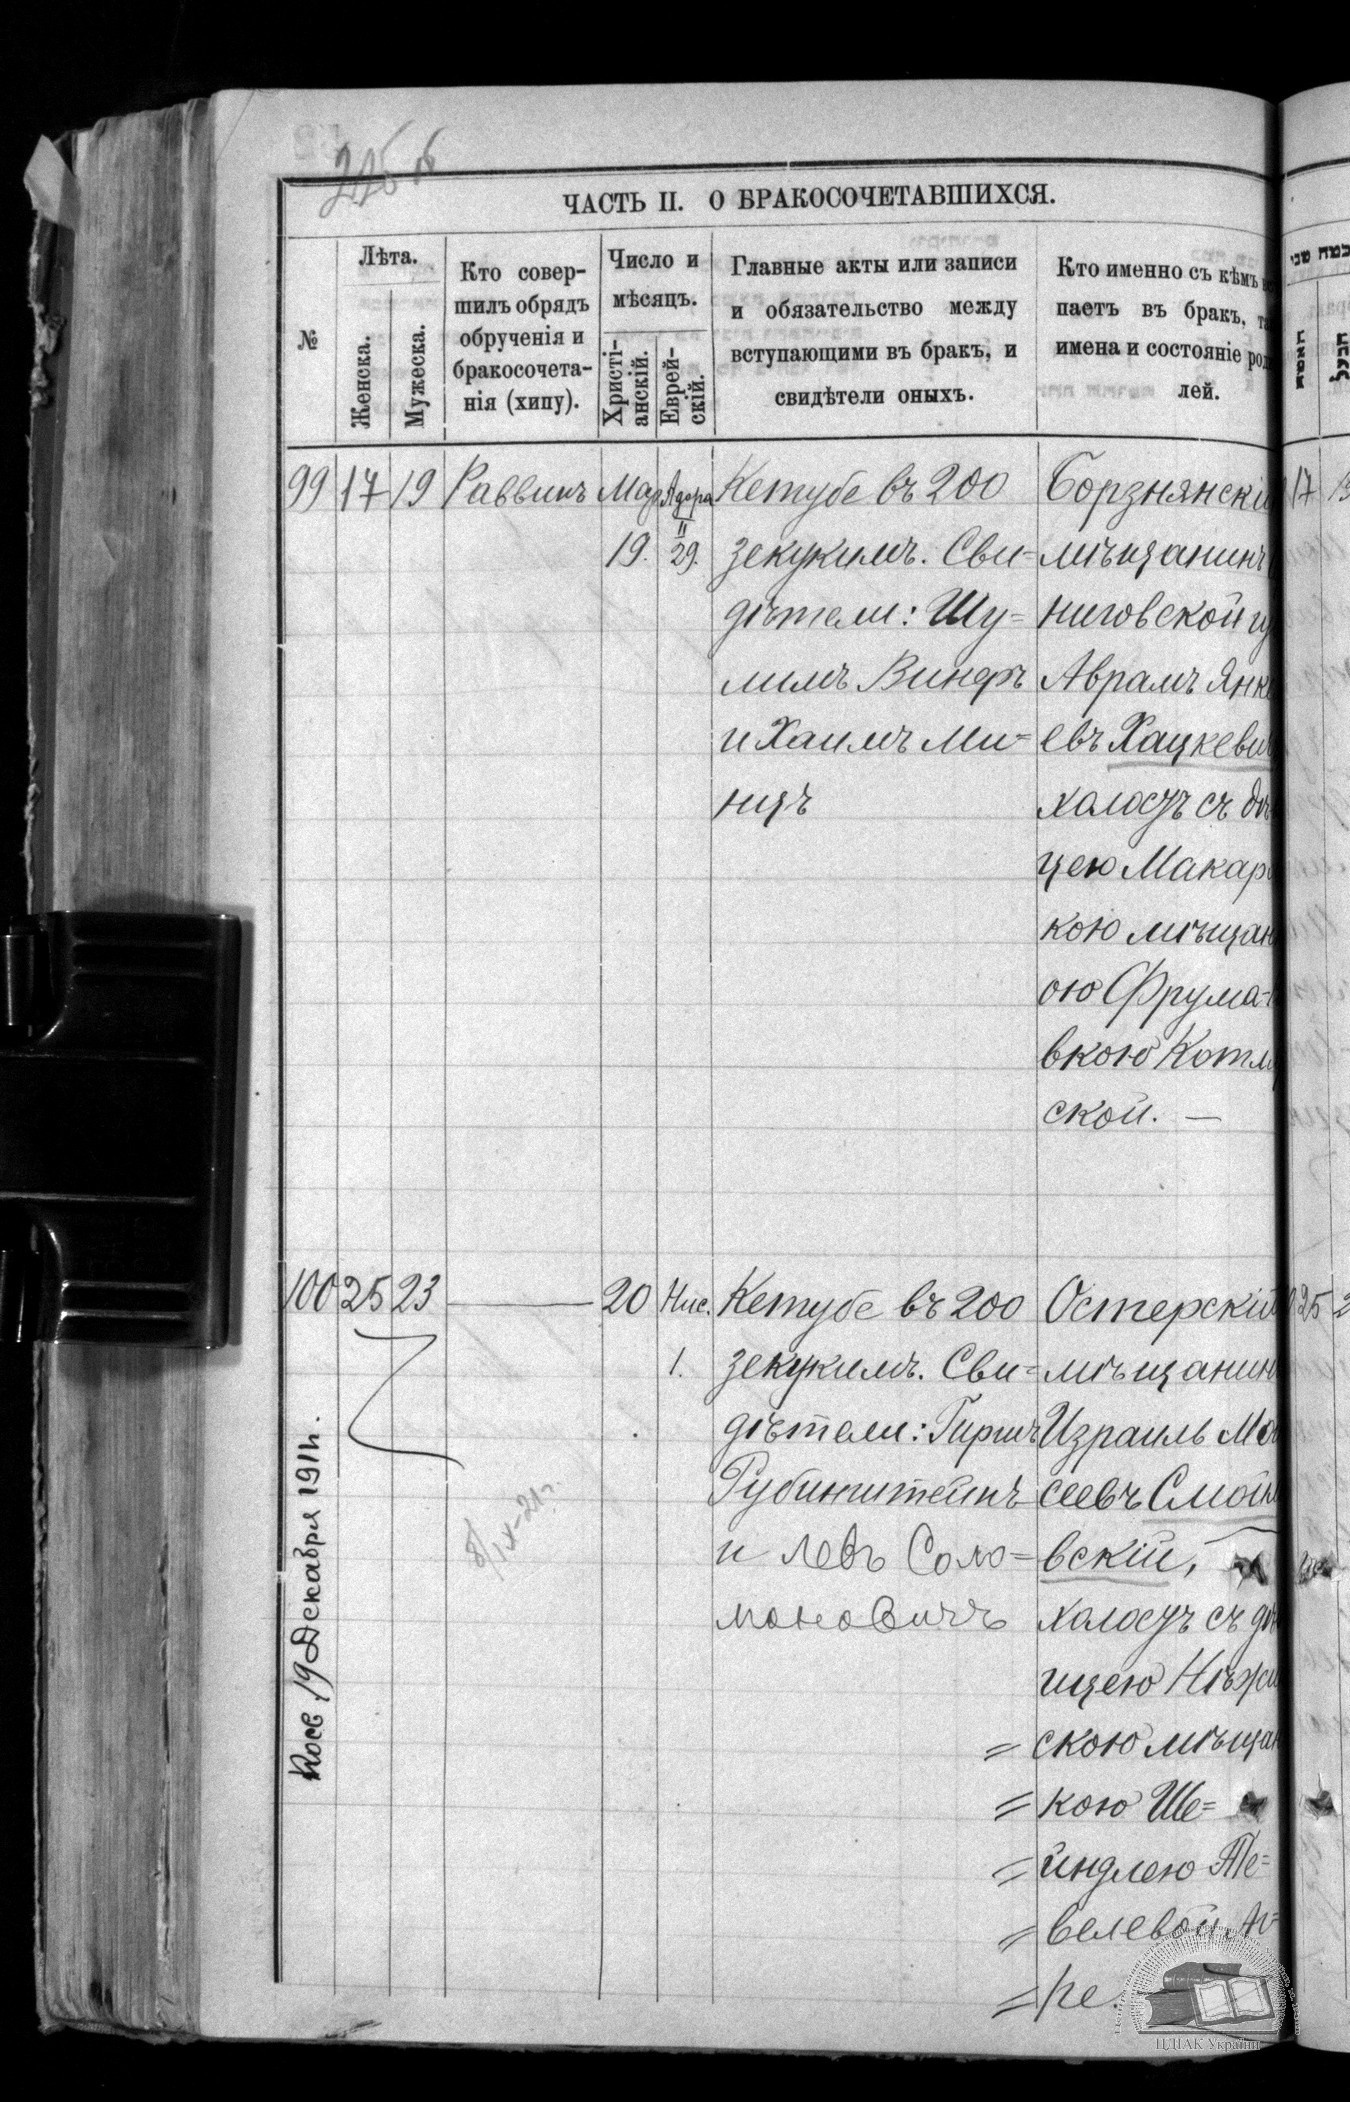 ЧАСТЬ II. О БРАКОСОЧЕТАВШИХСЯ.
№
Лѣта.
Женска.
Мужеска.
Кто совер-
шилъ обрядъ
обрученія и
бракосочета-
нія (хипу).
Число и
мѣсяцъ.
Христі-
анскій.
Еврей-
скій.
Главные акты или записи
и обязательство между
вступающими въ бракъ, и
свидѣтели оныхъ.
Кто именно съ кѣмъ
паетъ въ бракъ,
имена и состояніе
лей.
99 17 19 Раввинъ Мар. Адара
19. II
29.
Кетубе въ 200
зекукимъ. Сви=
дѣтели: Шу=
лимъ Винфъ
и Хаимъ Ми=
нцъ
Борзнянскій
мѣщанинъ
ниговской
Аврамъ Янк
евъ Хацкеви
холосуъ съ дѣ
цею Макар
кою мѣщан
ою Фрума-
вкою Котля
ской. —
100 25 23 — 20 Нис.
1.
Кетубе въ 200
зекукимъ. Сви=
дѣтели: Гиршъ
Рубинштейнъ
и Левъ Соло=
моновичъ
Остерскій
мѣщанин
Израиль Мо
сеевъ Смоля
вскій,
холосуъ съ дѣ
ицею Нѣжи
= скою мѣщан
= кою Ше=
= йндлею Те=
= велевой
= ре.
8/IX-21г.
19 Декабря 1911г.
האשה
הבעל
17
25
ЦДІАК України